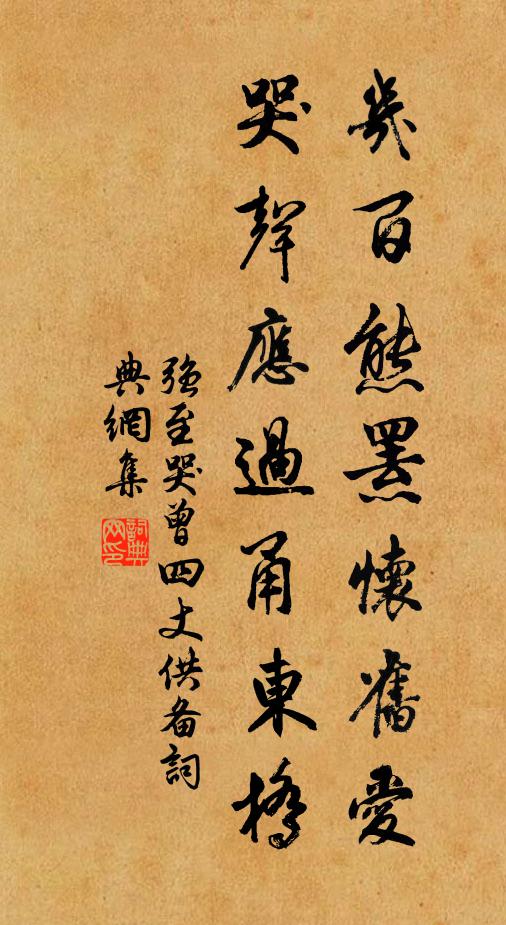 幾百熊羆懷舊愛
哭聲應過甬東橋
強至哭曾四丈供备詞
典網集
詞典網印